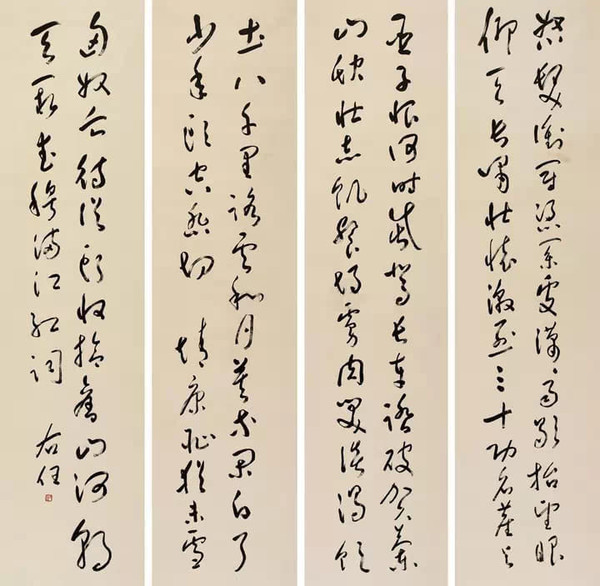 怒髮衝冠憑闌處瀟瀟雨歇抬望眼
仰天長嘯壯懷激烈三十功名塵與
臣子恨何時滅駕長車踏破賀蘭
山缺壯志飢餐胡虜肉笑談渴飲
土八千里路雲和月莫等閒白了
少年頭空悲切 靖康恥猶未雪
匈奴血待從頭收拾舊山河朝
天闕武穆滿江紅詞 右任